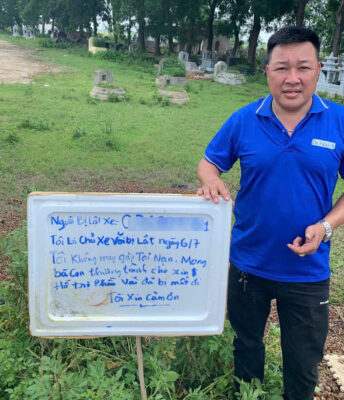 Người Bị Lật Xe:
Tôi Là Chủ Xe Vải bị Lật ngày 6/7
Tôi Không may gặp Tai Nạn. Mong
bà con thương tình cho xin
Hỗ trợ Phần Vải đã bị mất đi
Tôi Xin Cảm Ơn